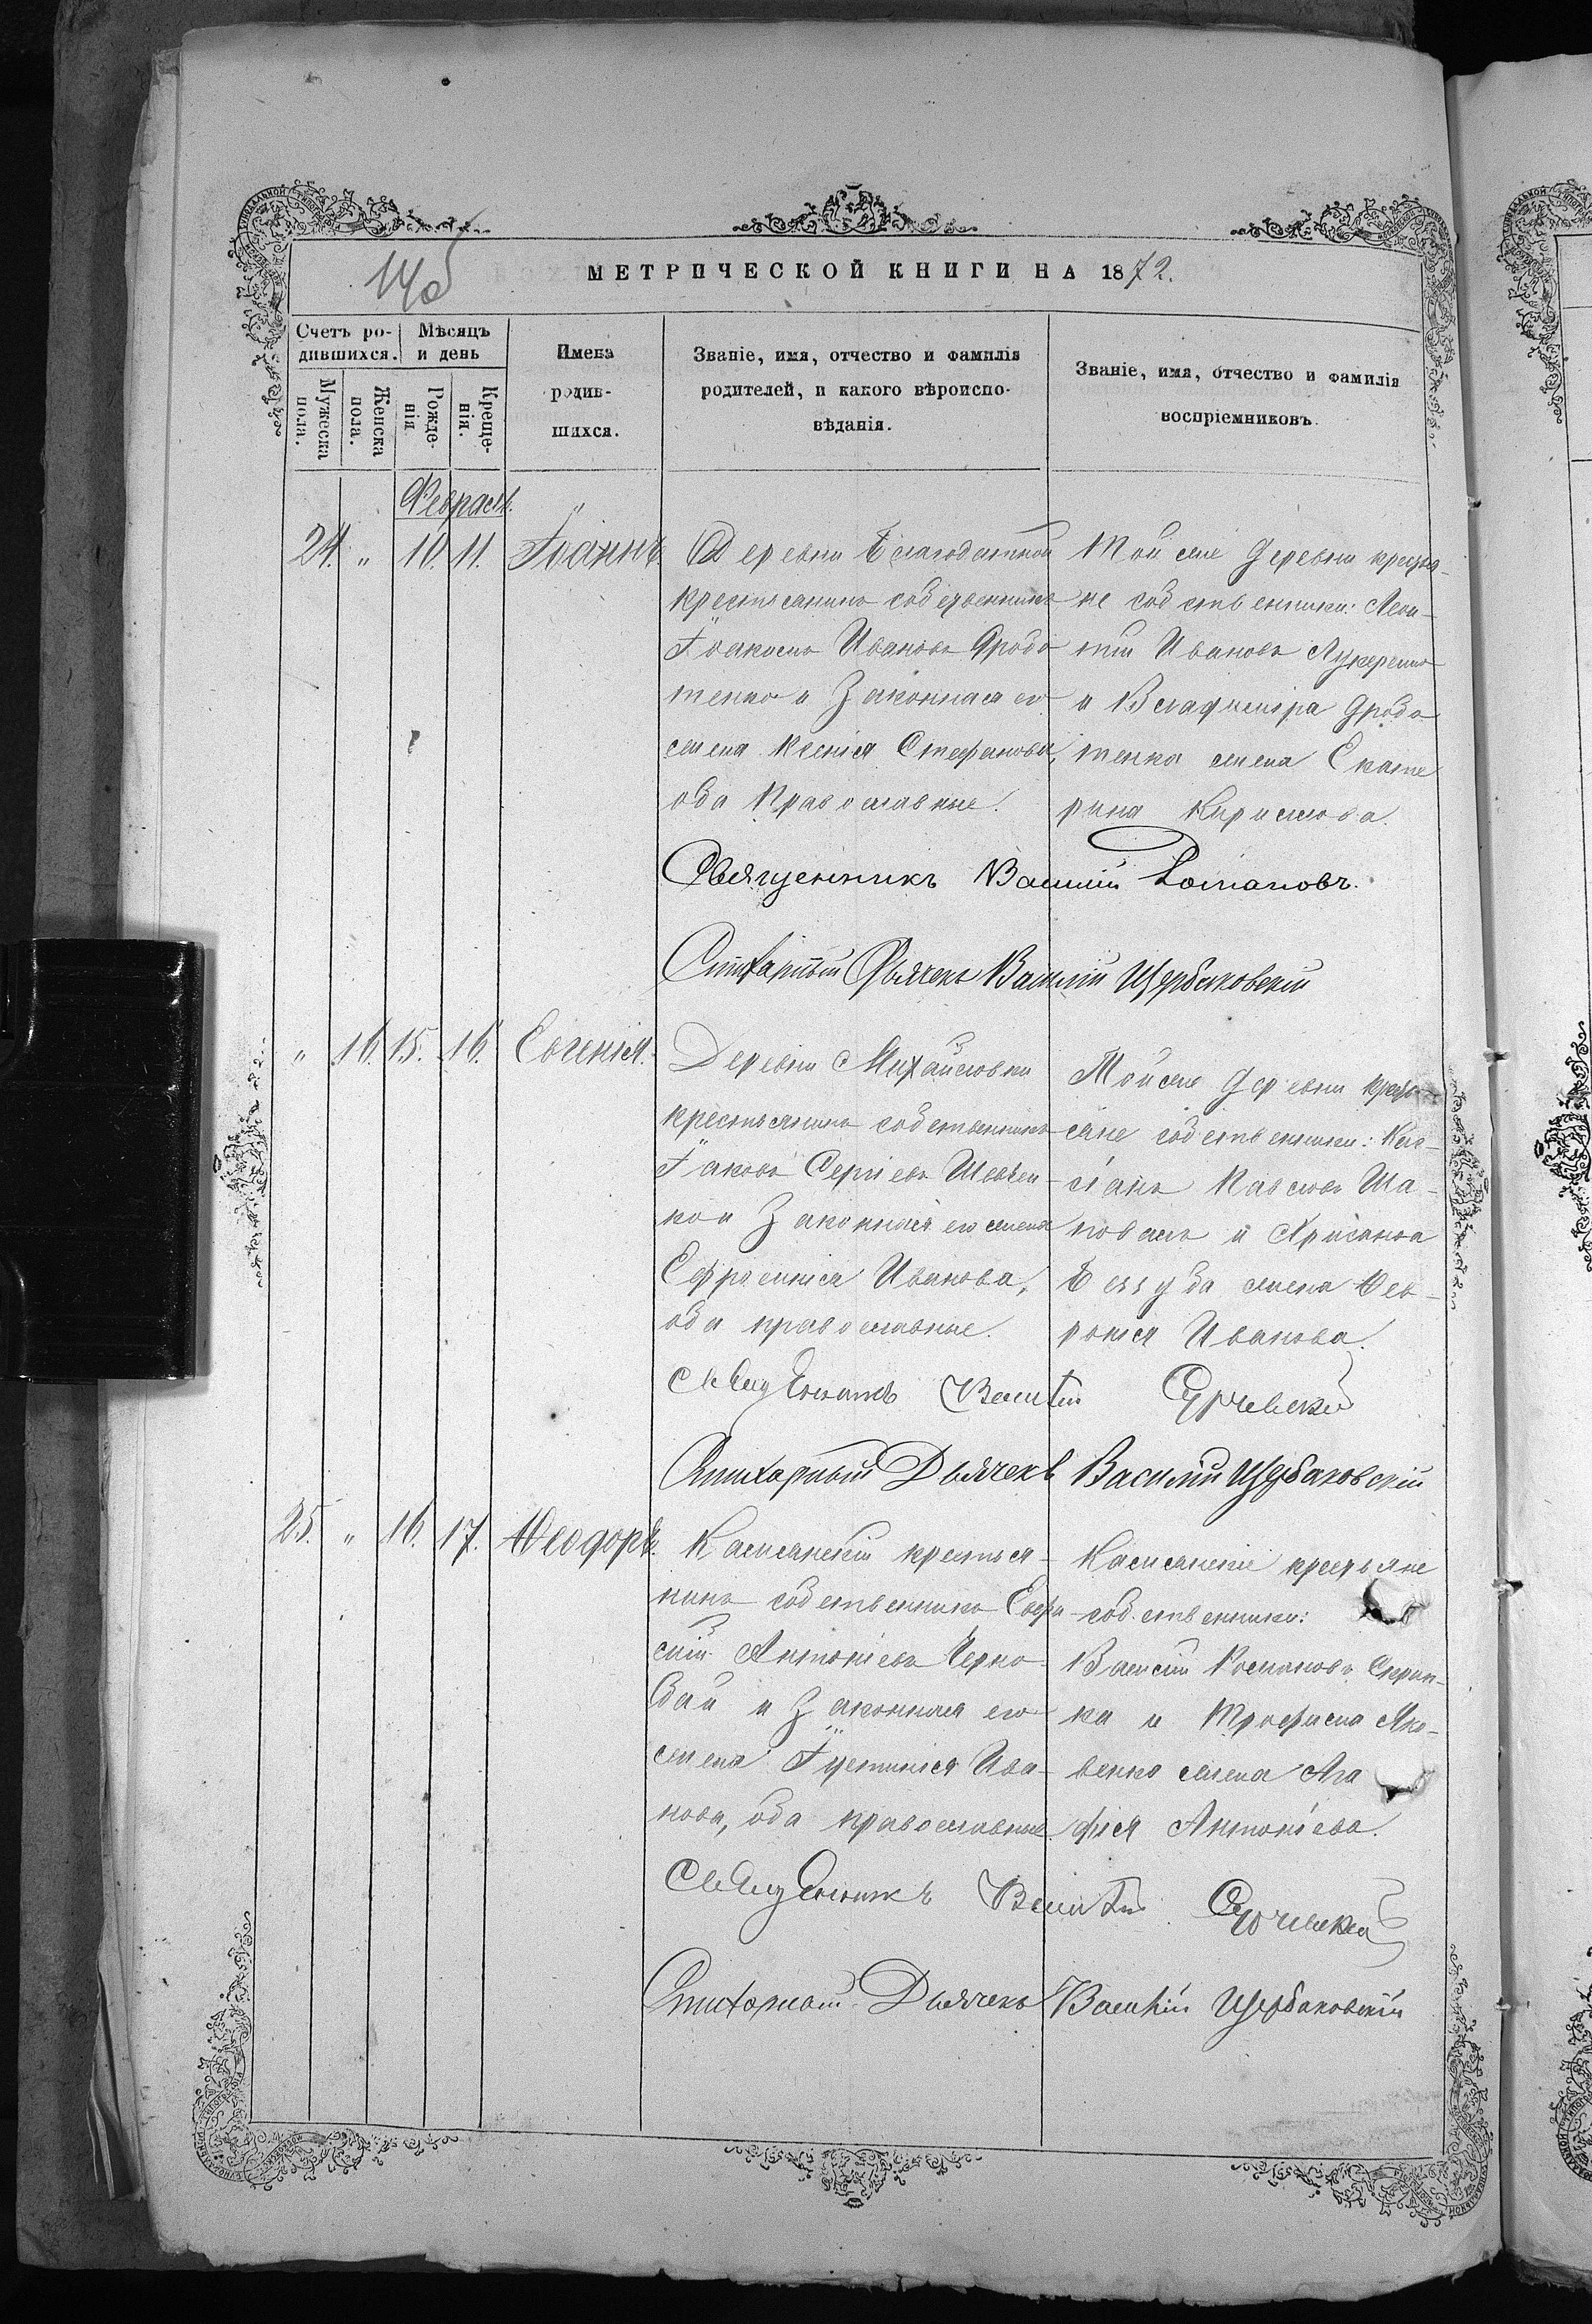 14об
МЕТРИЧЕСКОЙ КНИГИ НА 1872.
Счетъ ро-
дившихся.
Мѣсяцъ
и день
Мужеска
пола.
Женска
пола.
Рожде-
нія
Креще-
нія.
Имена
родив-
шихся.
Званіе, имя, отчество и фамилія
родителей, и какого вѣроиспо-
вѣданія.
Званіе, имя, отчество и фамилія
воспріемниковъ.
Февраль.
24. " 10. 11. Іоаннъ.
Деревни Благодатной
крестьянинъ собственникъ
Іоакимъ Ивановъ Дробо
тенко и законная его
жена Ксенія Стефанова,
оба Православные.
Той же деревни крестья-
не собственники:
Ивановъ
и Владиміра Дробо
тенка жена Екате
рина Кирилова.
Священникъ Василій Романовъ.
Стихарный Дьячекъ Василій Щербаковскій
" 16. 15. 16. Евгенія.
Деревни Михайловки
крестьянинъ собственникъ
Іаковъ Сергіевъ Шевчен-
ко и законная его жена
Евфросинія Иванова,
оба православные.
Той же деревни кресть-
яне собственники: Кас-
іанъ Павловъ Ша-
повалъ и
жена Фев-
ронія Иванова.
Священникъ Василій
Стихарный Дьячекъ Василій Щербаковскій
25. " 16. 17. Ѳеодоръ.
крестья-
нинъ собственникъ Евфи-
мій Антоніевъ Черно-
бай и законная его
жена Іустинія Ива-
нова, оба православные.
крестьяне
собственники:
Василій Романовъ
ка и Трофима Яко-
венка жена Ага
фія Антоніева.
Священникъ Василій
Стихарный Дьячекъ Василій Щербаковскій